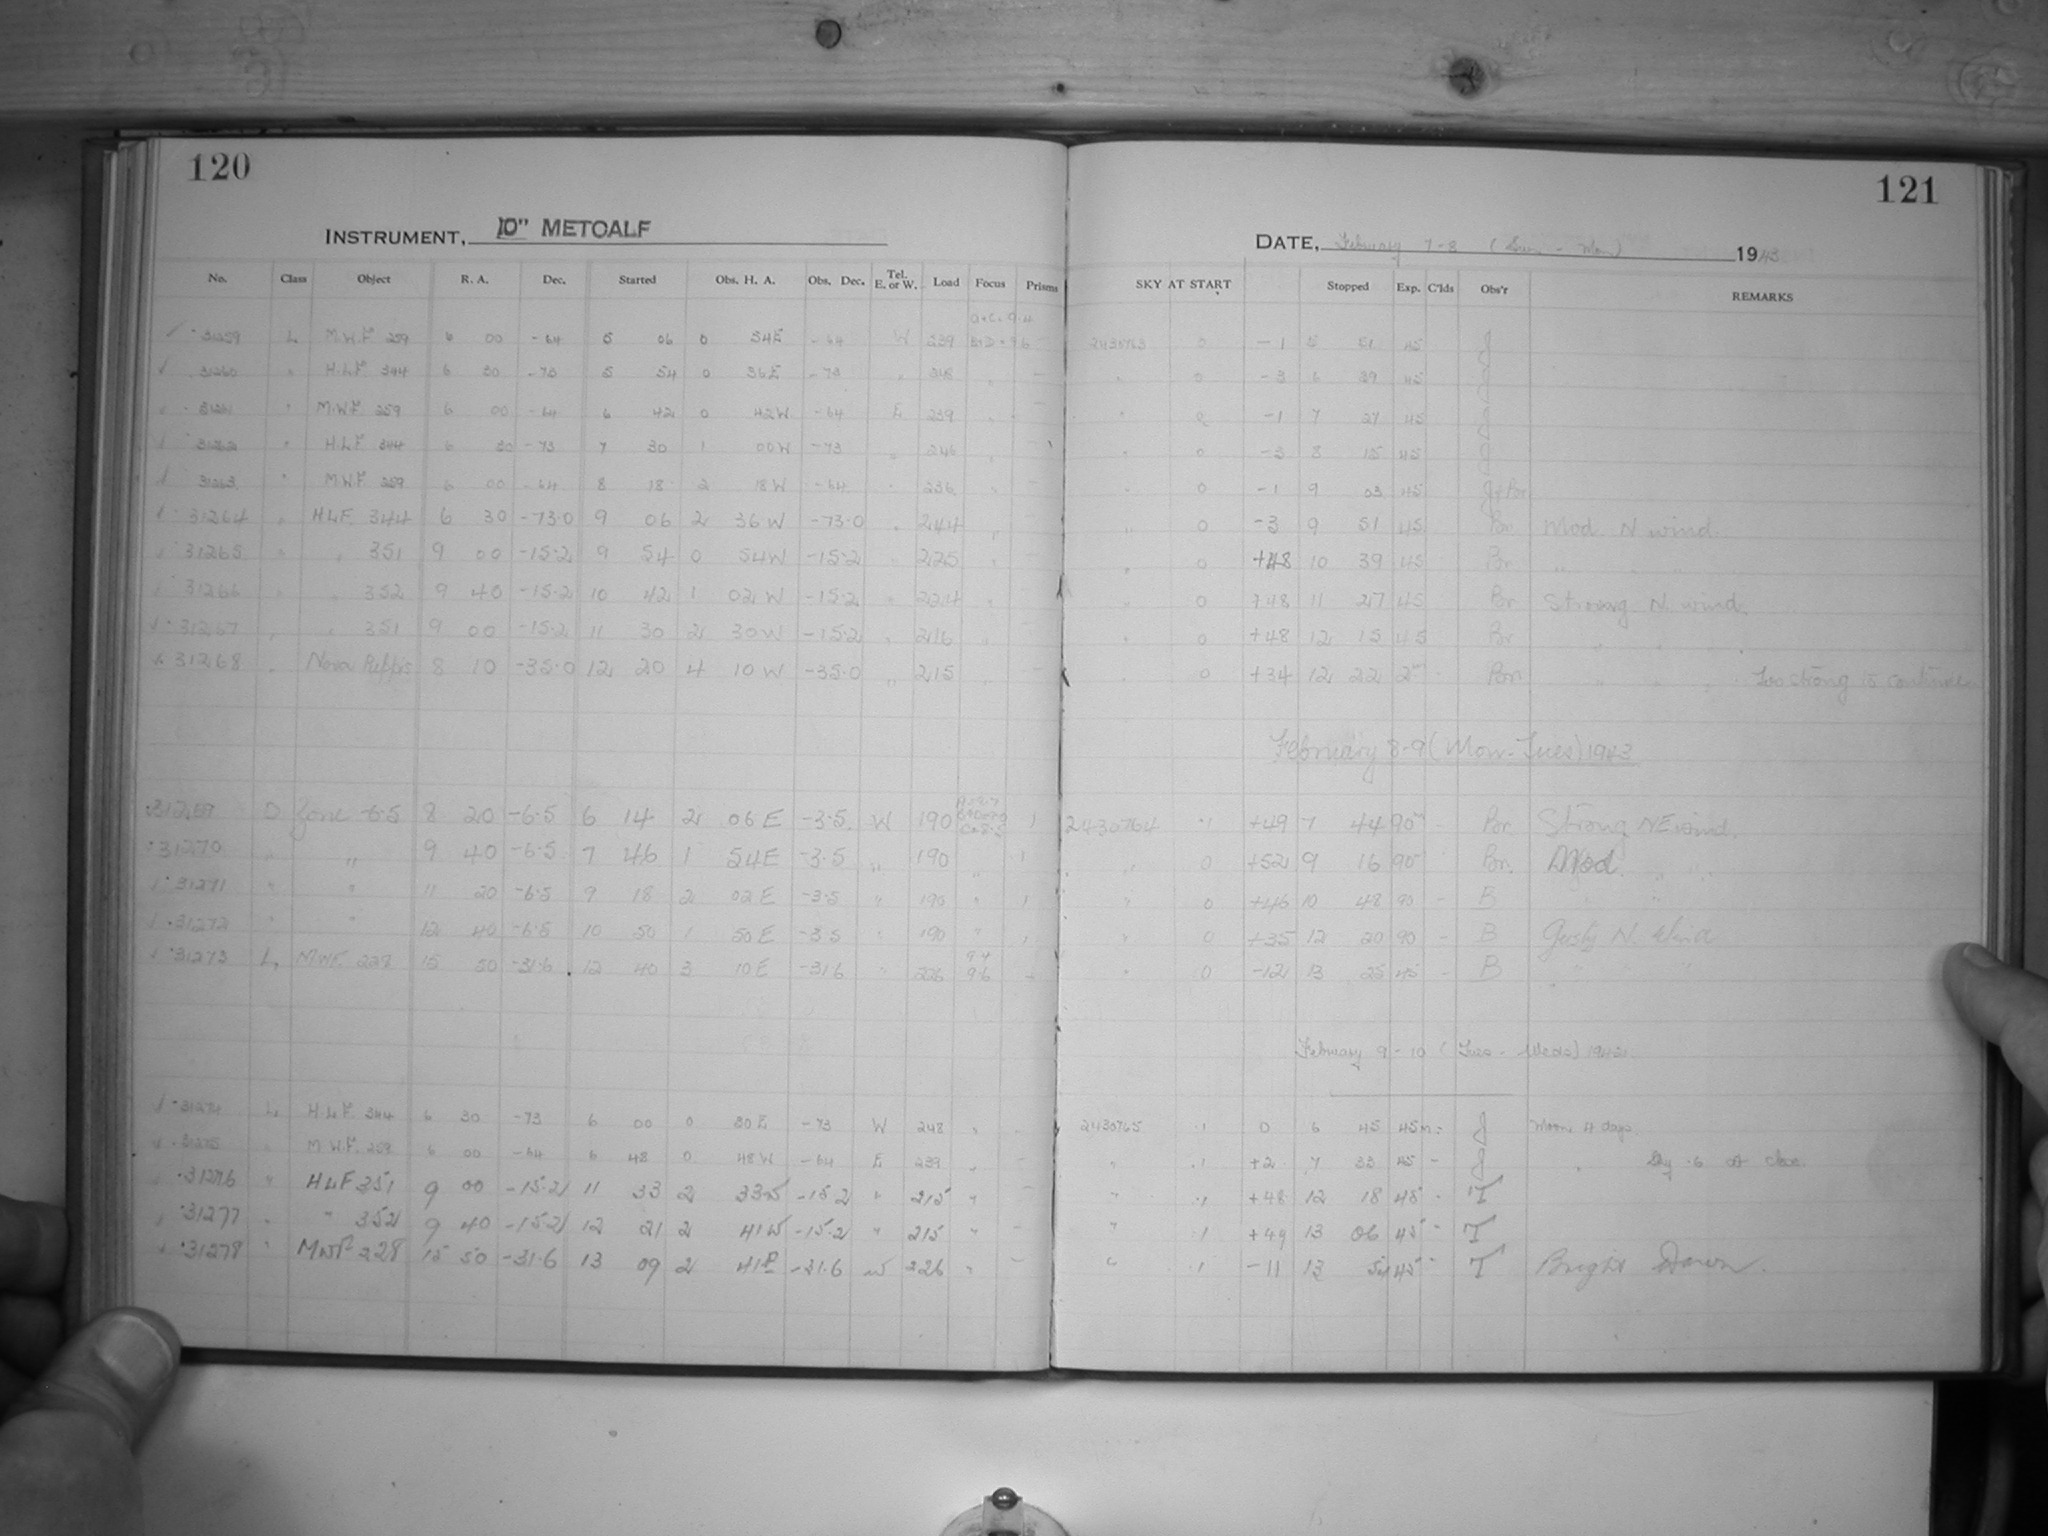 120
121
INSTRUMENT, 10" METCALF
DATE, February 7-8 (Sun - Mon) 1943
No. Class Object R. A. Dec. Started Obs. H. A. Obs. Dec. Tel. E. or W. Load Focus Prisms SKY AT START Stopped Exp. C'lds Obs'r REMARKS
31259 L M.W.F. 259 6 00 -64 5 06 0 54E -64 W 239 2430763 0 -1 5 51 45 J
31260 " H.L.F. 344 6 30 -73 5 54 0 36E -73 " 248 " - " 0 -3 6 39 45 J
31261 " M.W.F. 259 6 00 -64 6 42 0 42W -64 E 239 " - " 0 -1 7 27 45 J
31262 " H.L.F. 344 6 30 -73 7 30 1 00W -73 " 246 " - " 0 -3 8 15 45 J
31263 " M.W.F. 259 6 00 -64 8 18 2 18W -64 " 236 " - " 0 -1 9 03 45 J+Br
31264 " H.L.F. 344 6 30 -73.0 9 06 2 36W -73.0 " 244 " - " 0 -3 9 51 45 Br Mod. N wind.
31265 " " 351 9 00 -15.2 9 54 0 54W -15.2 " 225 " - " 0 +48 10 39 45 Br " " "
31266 " " 352 9 40 -15.2 10 42 1 02W -15.2 " 224 " - " 0 +48 11 27 45 Br Strong N. wind.
31267 " " 351 9 00 -15.2 11 30 2 30W -15.2 " 216 " - " 0 +48 12 15 45 Br " " "
31268 " Nova Puppis 8 10 -35.0 12 20 4 10W -35.0 " 215 " - " 0 +34 12 22 2m Br " " " Too strong to continue
February 8-9 (Mon-Tues) 1943
31269 D Zone -6.5 8 20 -6.5 6 14 2 06E -3.5 W 190 1 2430764 .1 +49 7 44 90m - Br Strong NE wind.
31270 " " 9 40 -6.5 7 46 1 54E -3.5 " 190 " 1 " 0 +52 9 16 90 Br. Mod. " "
31271 " " 11 20 -6.5 9 18 2 02E -3.5 " 190 " 1 " 0 +46 10 48 90 - B " "
31272 " " 12 40 -6.5 10 50 1 50E -3.5 " 190 " 1 " 0 +35 12 20 90 - B Gusty N. Wind
31273 L MWF. 228 15 50 -31.6 12 40 3 10E -31.6 " 226 9.4 9.6 - " 0 -12 13 25 45 - B " " "
February 9-10 (Tues - Weds) 1943
31274 L H.L.F. 344 6 30 -73 6 00 0 30E -73 W 248 " - 2430765 .1 0 6 45 45m - J Moon 4 days.
31275 " M.W.F. 259 6 00 -64 6 48 0 48W -64 E 239 " - " .1 +2 7 33 45 - J " Sky .6 at close.
31276 " HLF 351 9 00 -15.2 11 33 2 33W -15.2 " 215 " - " .1 +48 12 18 45 - T
31277 " " 352 9 40 -15.2 12 21 2 41W -15.2 " 215 " - " .1 +49 13 06 45 - T
31278 " MWF 228 15 50 -31.6 13 09 2 41E -31.6 W 226 " - " .1 -11 13 54 45 - T Bright Dawn.